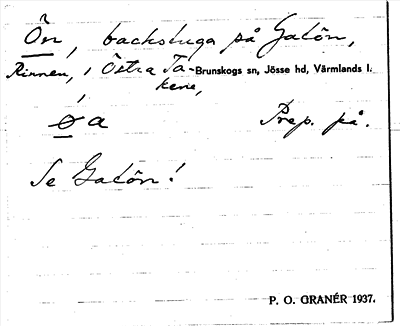 Ön, backstuga på Galön,
Rinnen, i Östra Tä- Brunskogs sn, Jösse hd, Värmlands l.
kene,
ø̀a Prep. på.
Se Galön!
P. O. GRANÉR 1937.